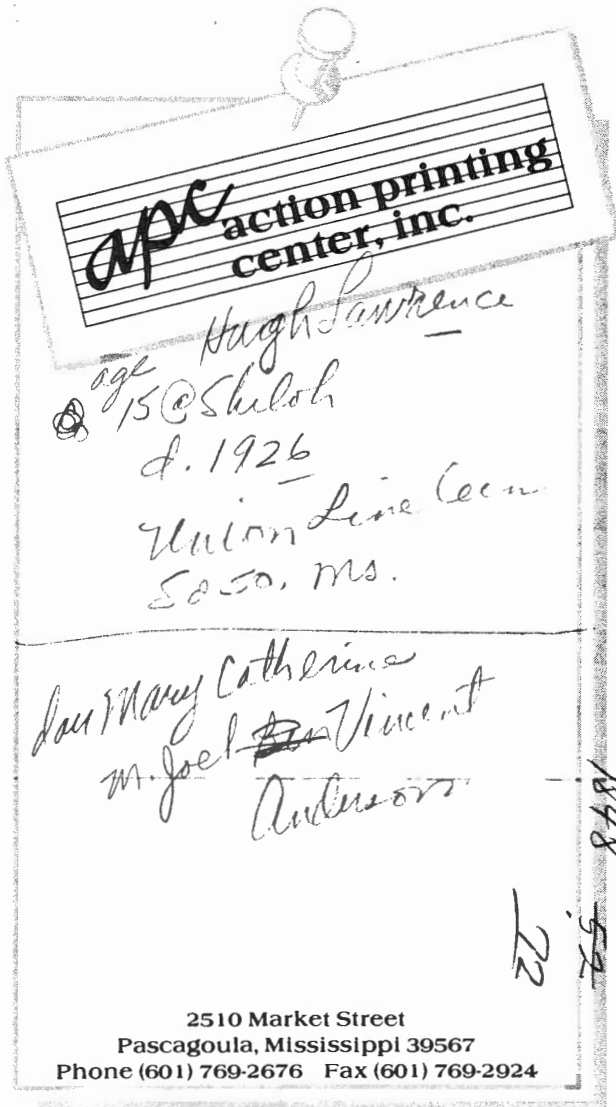 apc action printing
center, inc.
Hugh Lawrence
age
15 @ Shiloh
d. 1926
Union Line Cem
Soso, Ms.
dau Mary Catherine
m. Joel Vincent
Anderson
1848
52
22
2510 Market Street
Pascagoula, Mississippi 39567
Phone (601) 769-2676 Fax (601) 769-2924